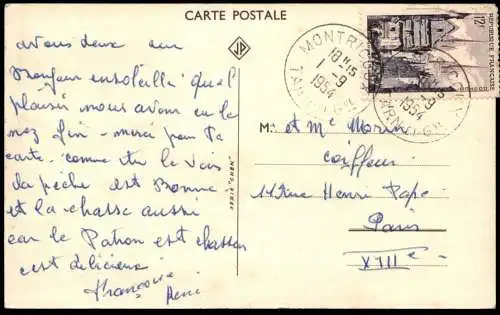 CARTE POSTALE
JP
à vous deux un
bonjour ensoleillé quel
plaisir nous avons eu le
nez fin - merci pour ta
carte. comme tu le vois
la pêche est Bonne
et la chasse aussi
car le Patron est chasseur
c'est délicieux
Françoise
René
SÉRIE "CHEN"
MONTRICOUX
18H15
1-9
1954
TARN-ET-GNE
12F
REPUBLIQUE FRANÇAISE
M. et Me Morin
Coiffeur
11 Rue Henri Pape
Paris
XIIIe